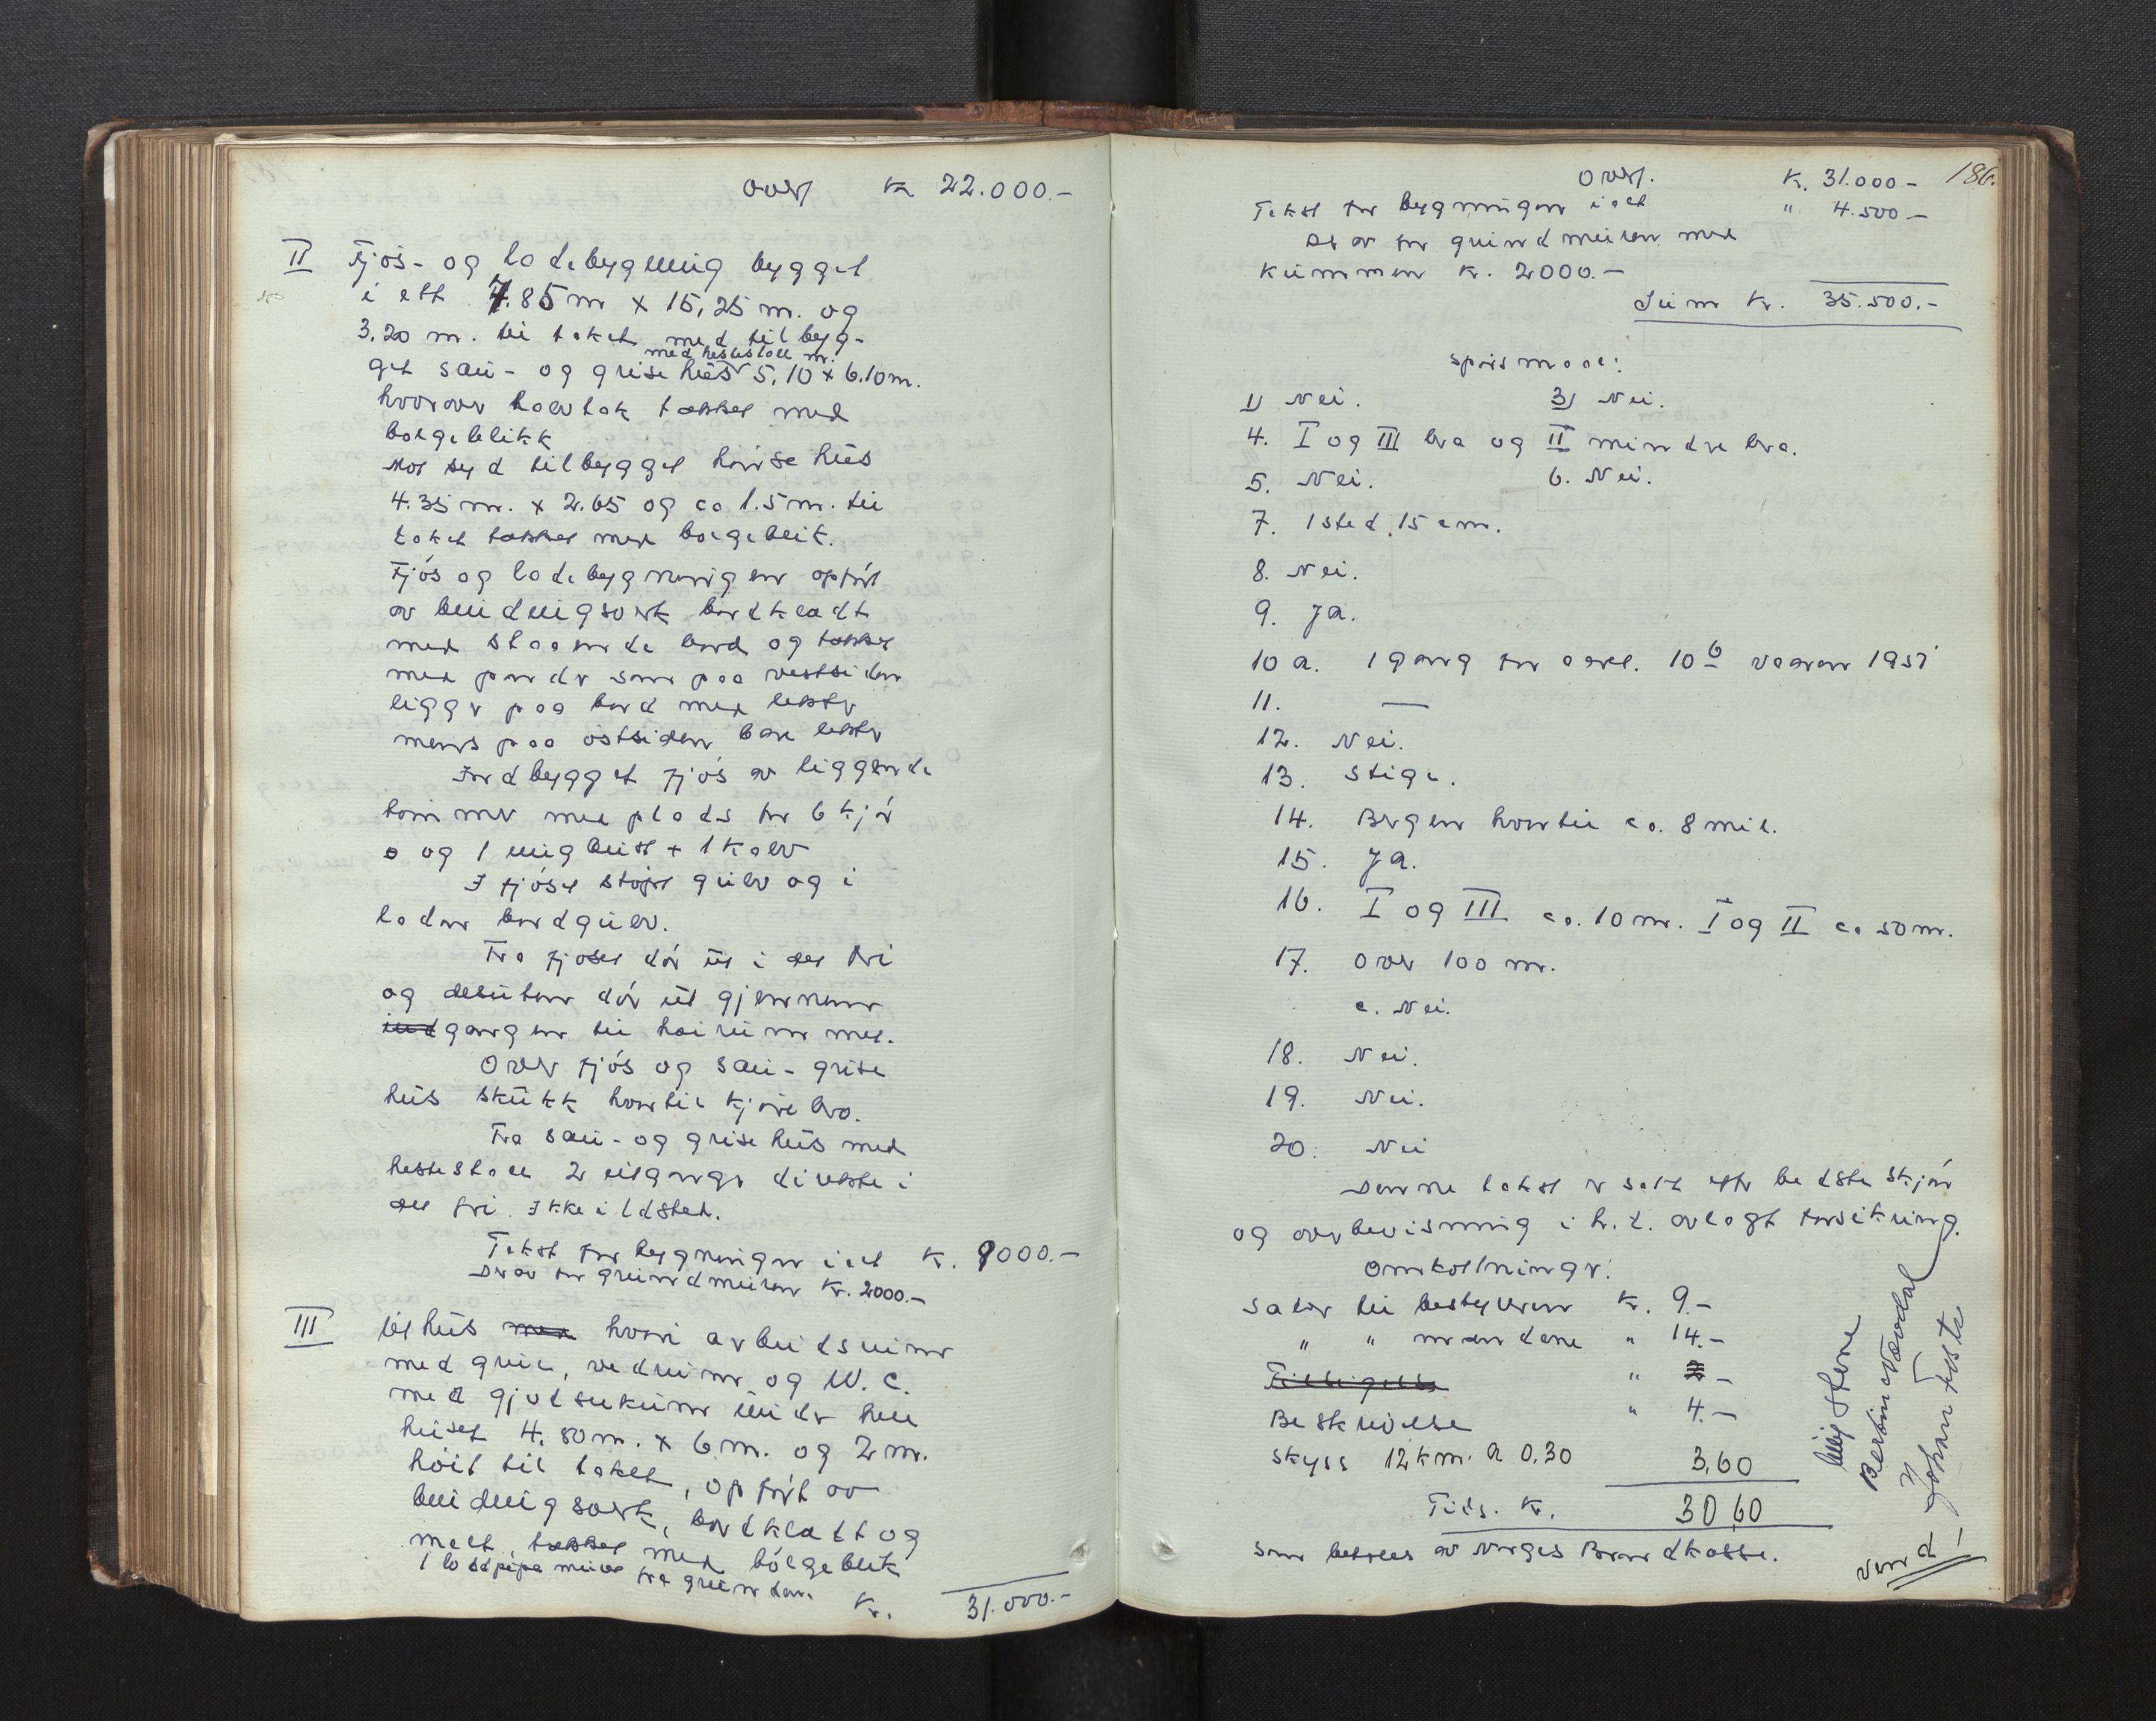 overf Kr 22.000.-
II Fjøs- og ladebygning bygget
i ett 7.85 m x 15,25 m. og
3.20 m. til taket med tilbyg-
med hestestall m.
get sau- og grisehus 5,10 x 6.10 m.
hvorover halvtak tækket med
bølgeblikk
Mot syd tilbygget hønsehus
4.35 m. x 2.65 og ca 1.5 m. til
taket tækket med bølgeblik.
Fjøs og ladebygningen opført
av bindingsverk bordklædt
med staaende bord og tækket
med panner som paa vestsiden
ligger paa bord med lekter
mens paa østsiden bare lekter
Indbygget fjøs av liggende
tømmer med plads for 6 kjør
og 1 ungbeist + 1 kalv
I fjøset støpt gulv og i
laden bordgulv.
Fra fjøset dør ut i det fri
og desuten dør ut gjennem
indgangen til hørummet.
Over fjøs og sau- grise
hus skukk hvortil kjørebro.
Fra sau- og grisehus med
hestestall 2 utganger direkte i
det fri. Ikke ildsted.
Takst for bygningen i alt Kr. 9000.-
Derav for grundmuren Kr. 2000.-
III Uthus med hvori arbeidsrum
med grue, vedrum og W.C.
med gjødselkum under hele
huset 4.80 m. x 6 m. og 2 m.
høit til taket, opført av
bindingsverk, bordklædt og
malt, tækket med bølgeblik
1 løsdpipe muret fra grunden.
Kr. 31.000.-
186.
overf. K. 31.000-
Takst for bygningen i alt " 4.500-
Derav for grundmuren med
kummen Kr. 2000.-
Sum Kr. 35.500.-
Spørsmaal:
1) Nei. 3) Nei.
4. I og III bra og II mindre bra.
5. Nei. 6. Nei.
7. 1 sted, 15 cm.
8. Nei.
9. Ja.
10 a. 1 gang for aarl. 10 b vaaren 1951
11. —
12. Nei.
13. Stige.
14. Bergen hvortil ca. 8 mil.
15. Ja.
16. I og III ca. 10 m. I og II ca 50 m.
17. Over 100 m.
c. Nei.
18. Nei.
19. Nei.
20. Nei
Denne takst er satt efter bedste skjøn
og overbevisning i h.t. avlagt forsikring.
Omkostninger:
Salær til bestyreren Kr. 9.-
" " mændene " 14.-
" -
Beskrivelse " 4.-
Skyss 12 km. a 0.30 3,60
Tils. Kr. 30,60
som betales av Norges Brandkasse.
Bertin Nævdal
Johan Toste
Vend-